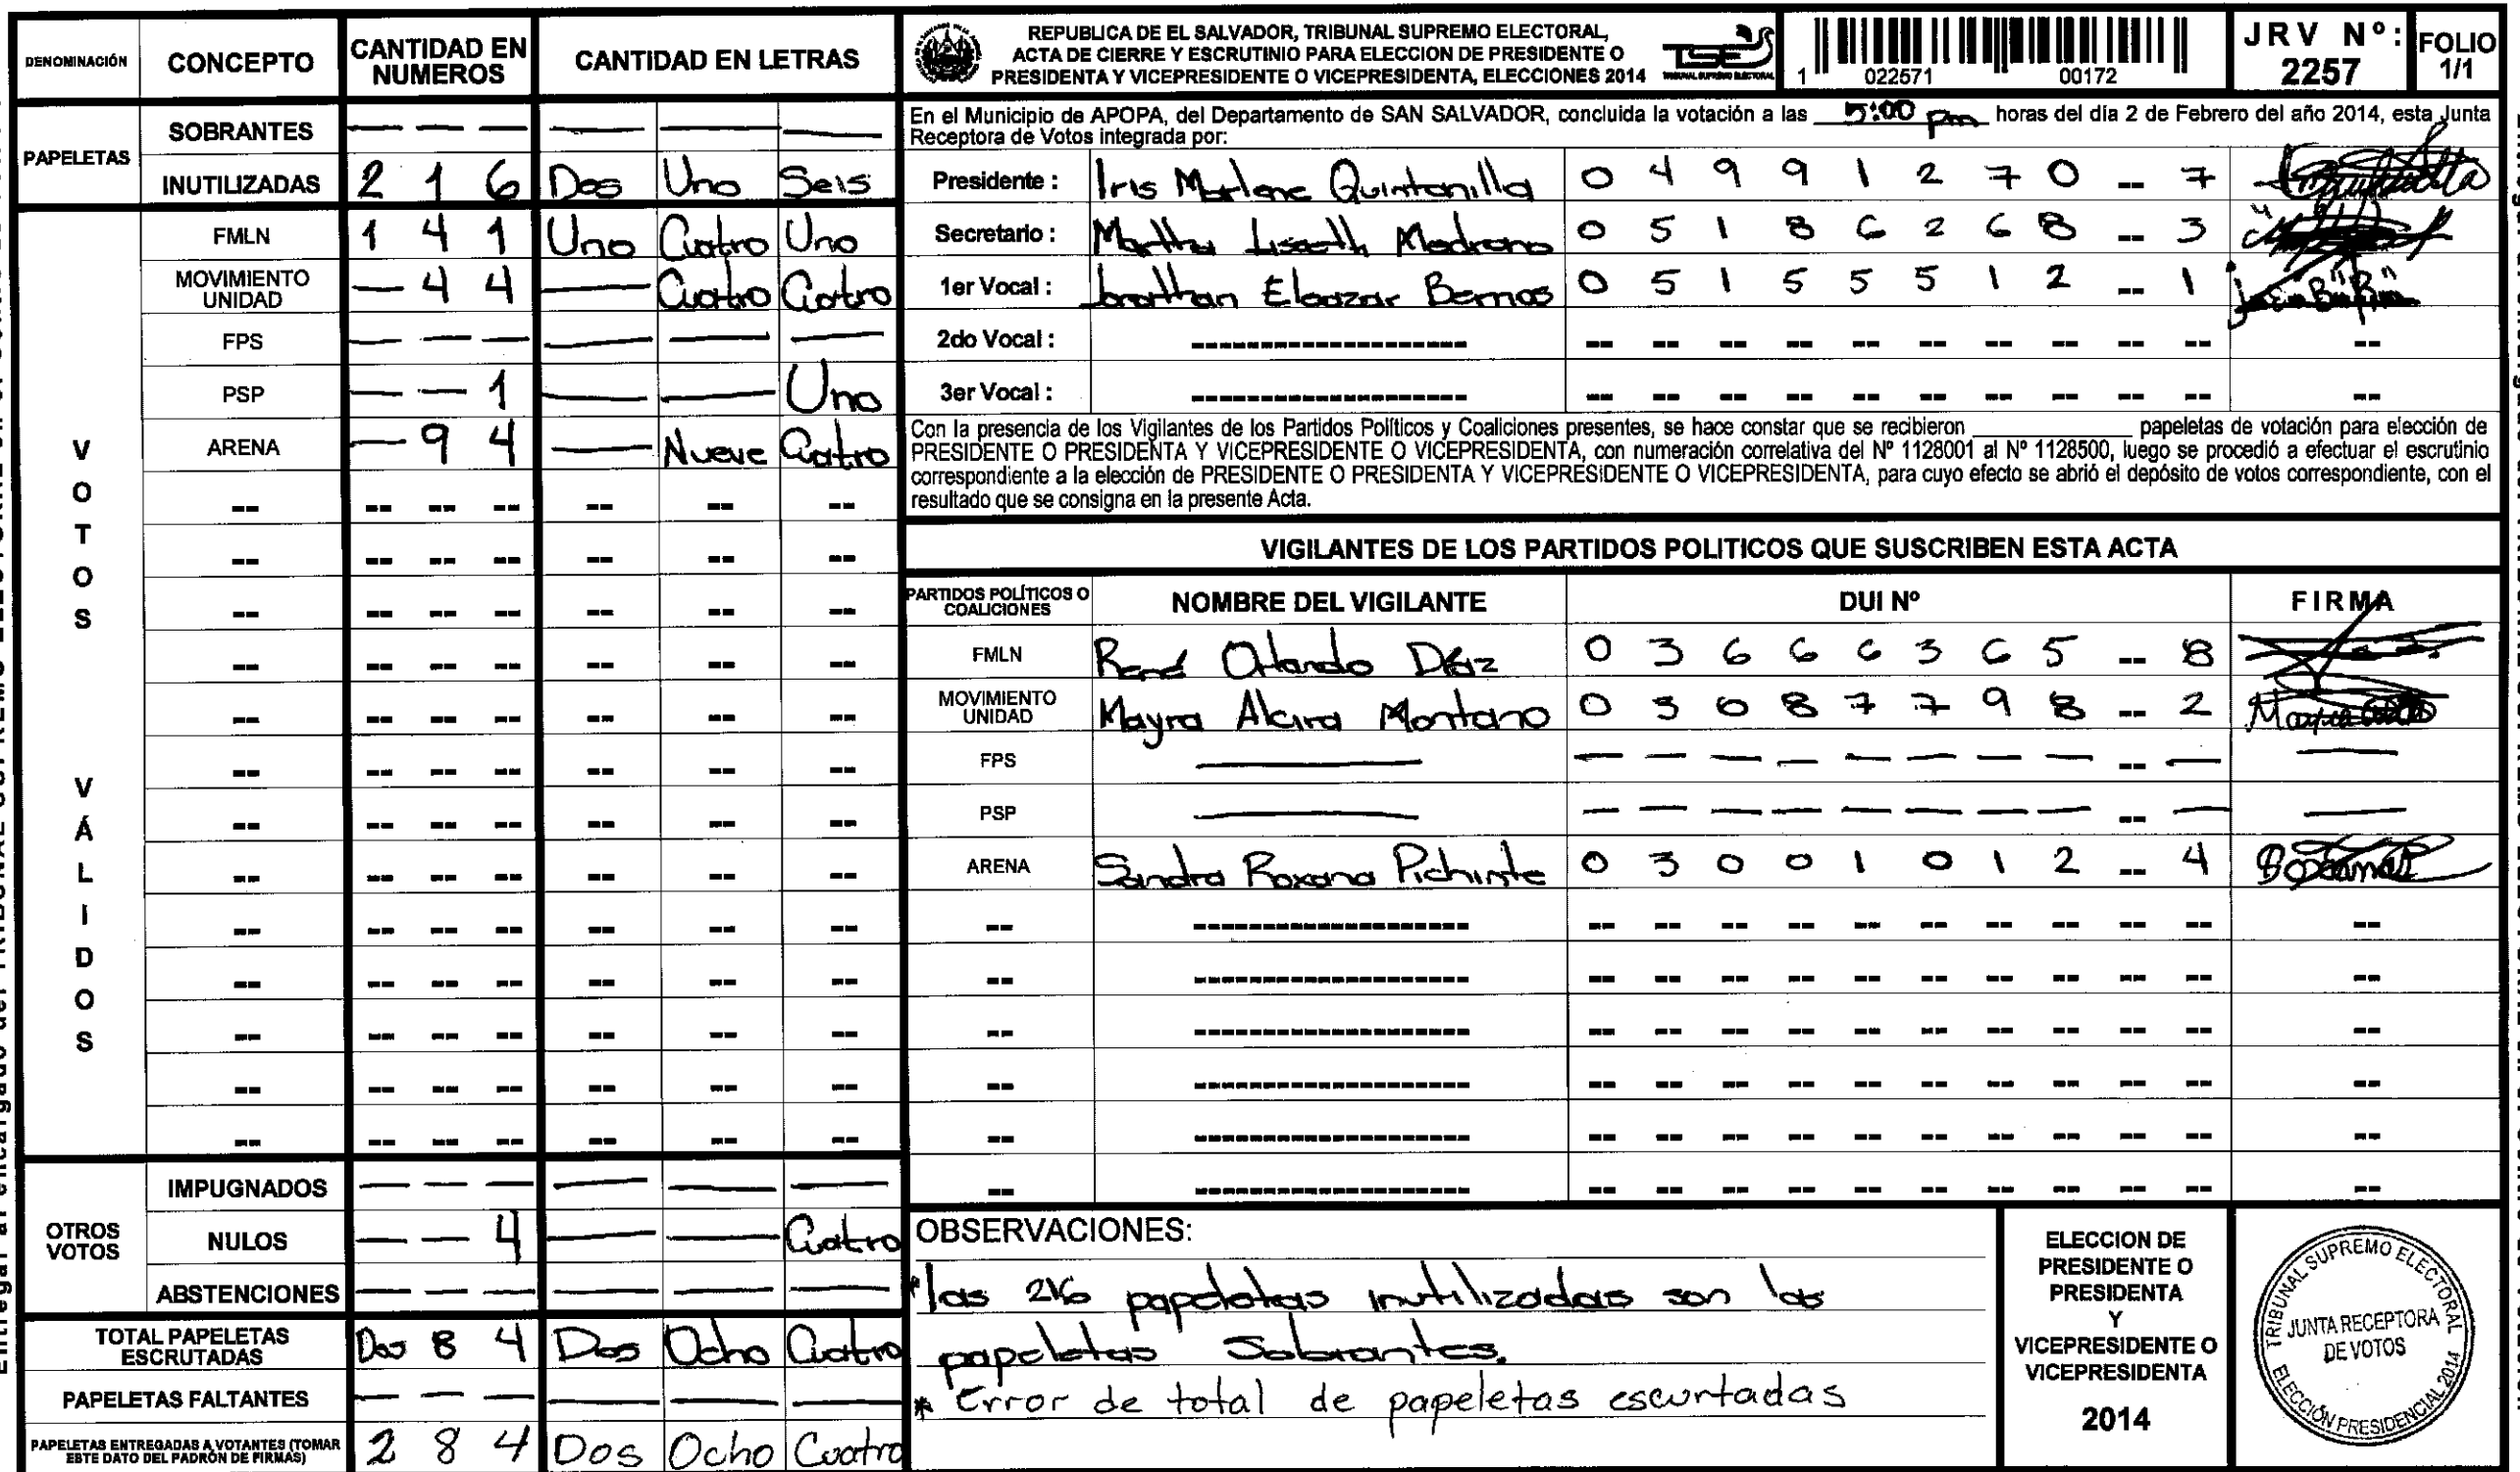 DENOMINACIÓN CONCEPTO CANTIDAD EN NUMEROS CANTIDAD EN LETRAS
PAPELETAS
SOBRANTES — — — — — —
INUTILIZADAS 2 1 6 Dos Uno Seis
VOTOS VÁLIDOS
FMLN 1 4 1 Uno Cuatro Uno
MOVIMIENTO UNIDAD — 4 4 — Cuatro Cuatro
FPS — — — — — —
PSP — — 1 — — Uno
ARENA — 9 4 — Nueve Cuatro
OTROS VOTOS
IMPUGNADOS — — — — — —
NULOS — — 4 — — Cuatro
ABSTENCIONES — — — — — —
TOTAL PAPELETAS ESCRUTADAS Dos 8 4 Dos Ocho Cuatro
PAPELETAS FALTANTES — — — — — —
PAPELETAS ENTREGADAS A VOTANTES (TOMAR ESTE DATO DEL PADRÓN DE FIRMAS) 2 8 4 Dos Ocho Cuatro
REPUBLICA DE EL SALVADOR, TRIBUNAL SUPREMO ELECTORAL,
ACTA DE CIERRE Y ESCRUTINIO PARA ELECCION DE PRESIDENTE O
PRESIDENTA Y VICEPRESIDENTE O VICEPRESIDENTA, ELECCIONES 2014
TSE
TRIBUNAL SUPREMO ELECTORAL
1 022571 00172
JRV Nº: 2257
FOLIO 1/1
En el Municipio de APOPA, del Departamento de SAN SALVADOR, concluida la votación a las 5:00 pm horas del día 2 de Febrero del año 2014, esta Junta
Receptora de Votos integrada por:
Presidente : Iris Marlene Quintanilla 0 4 9 9 1 2 7 0 -- 7
Secretario : Martha Liseth Medrano 0 5 1 8 6 2 6 8 -- 3
1er Vocal : Jonathan Eleazar Bernos 0 5 1 5 5 5 1 2 -- 1
2do Vocal :
3er Vocal :
Con la presencia de los Vigilantes de los Partidos Políticos y Coaliciones presentes, se hace constar que se recibieron ________ papeletas de votación para elección de
PRESIDENTE O PRESIDENTA Y VICEPRESIDENTE O VICEPRESIDENTA, con numeración correlativa del Nº 1128001 al Nº 1128500, luego se procedió a efectuar el escrutinio
correspondiente a la elección de PRESIDENTE O PRESIDENTA Y VICEPRESIDENTE O VICEPRESIDENTA, para cuyo efecto se abrió el depósito de votos correspondiente, con el
resultado que se consigna en la presente Acta.
VIGILANTES DE LOS PARTIDOS POLITICOS QUE SUSCRIBEN ESTA ACTA
PARTIDOS POLÍTICOS O COALICIONES NOMBRE DEL VIGILANTE DUI Nº FIRMA
FMLN René Orlando Díaz 0 3 6 6 6 3 6 5 -- 8
MOVIMIENTO UNIDAD Mayra Alcira Montano 0 3 0 8 7 7 9 8 -- 2
FPS — — — — — — — — — -- — —
PSP — — — — — — — — — -- — —
ARENA Sandra Roxana Pichinte 0 3 0 0 1 0 1 2 -- 4
OBSERVACIONES:
* las 216 papeletas inutilizadas son las
papeletas Sobrantes.
* Error de total de papeletas escurtadas
ELECCION DE
PRESIDENTE O
PRESIDENTA
Y
VICEPRESIDENTE O
VICEPRESIDENTA
2014
TRIBUNAL SUPREMO ELECTORAL
JUNTA RECEPTORA
DE VOTOS
ELECCIÓN PRESIDENCIAL 2014